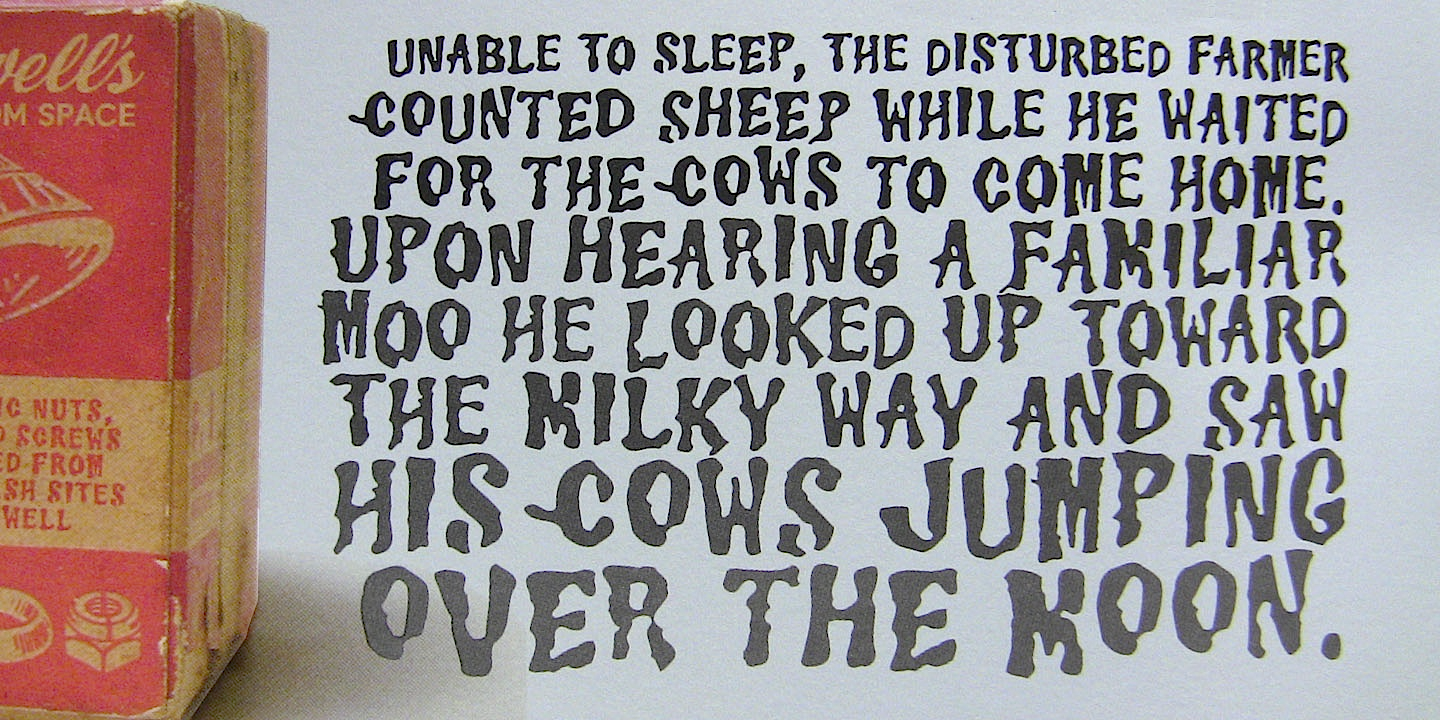 UNABLE TO SLEEP, THE DISTURBED FARMER
COUNTED SHEEP WHILE HE WAITED
FOR THE COWS TO COME HOME.
UPON HEARING A FAMILIAR
MOO HE LOOKED UP TOWARD
THE MILKY WAY AND SAW
HIS COWS JUMPING
OVER THE MOON.
SPACE
NUTS,
SCREWS
FROM
SITES